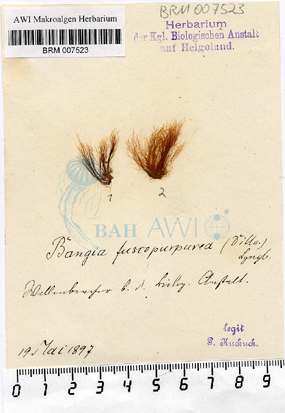 BRM 007523
AWI Makroalgen Herbarium
BRM 007523
Herbarium
der Kgl. Biologischen Anstalt
auf Helgoland.
1
2
BAH AWI
Bangia fuscopurpurea (Dillw.)
Lyngb.
Wellenbrecher b. d. biolog. Anstalt.
legit
P. Kuckuck.
19. Mai 1897
0 1 2 3 4 5 6 7 8 9